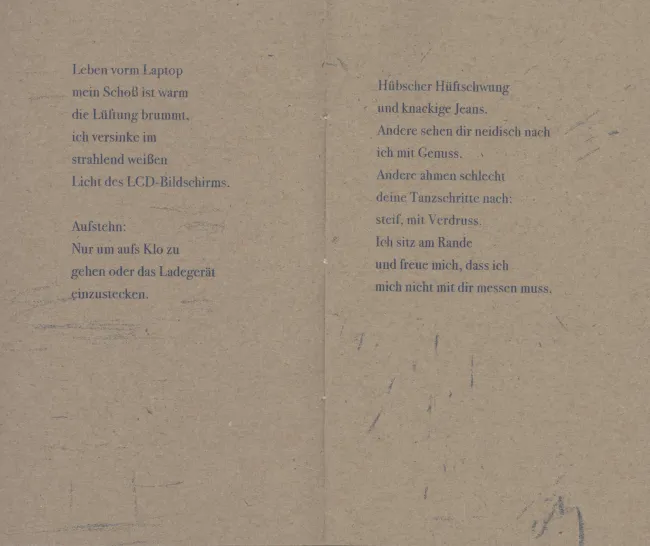 Leben vorm Laptop
mein Schoß ist warm
die Lüftung brummt,
ich versinke im
strahlend weißen
Licht des LCD-Bildschirms.
Aufstehn:
Nur um aufs Klo zu
gehen oder das Ladegerät
einzustecken.
Hübscher Hüftschwung
und knackige Jeans.
Andere sehen dir neidisch nach
ich mit Genuss.
Andere ahmen schlecht
deine Tanzschritte nach:
steif, mit Verdruss.
Ich sitz am Rande
und freue mich, dass ich
mich nicht mit dir messen muss.